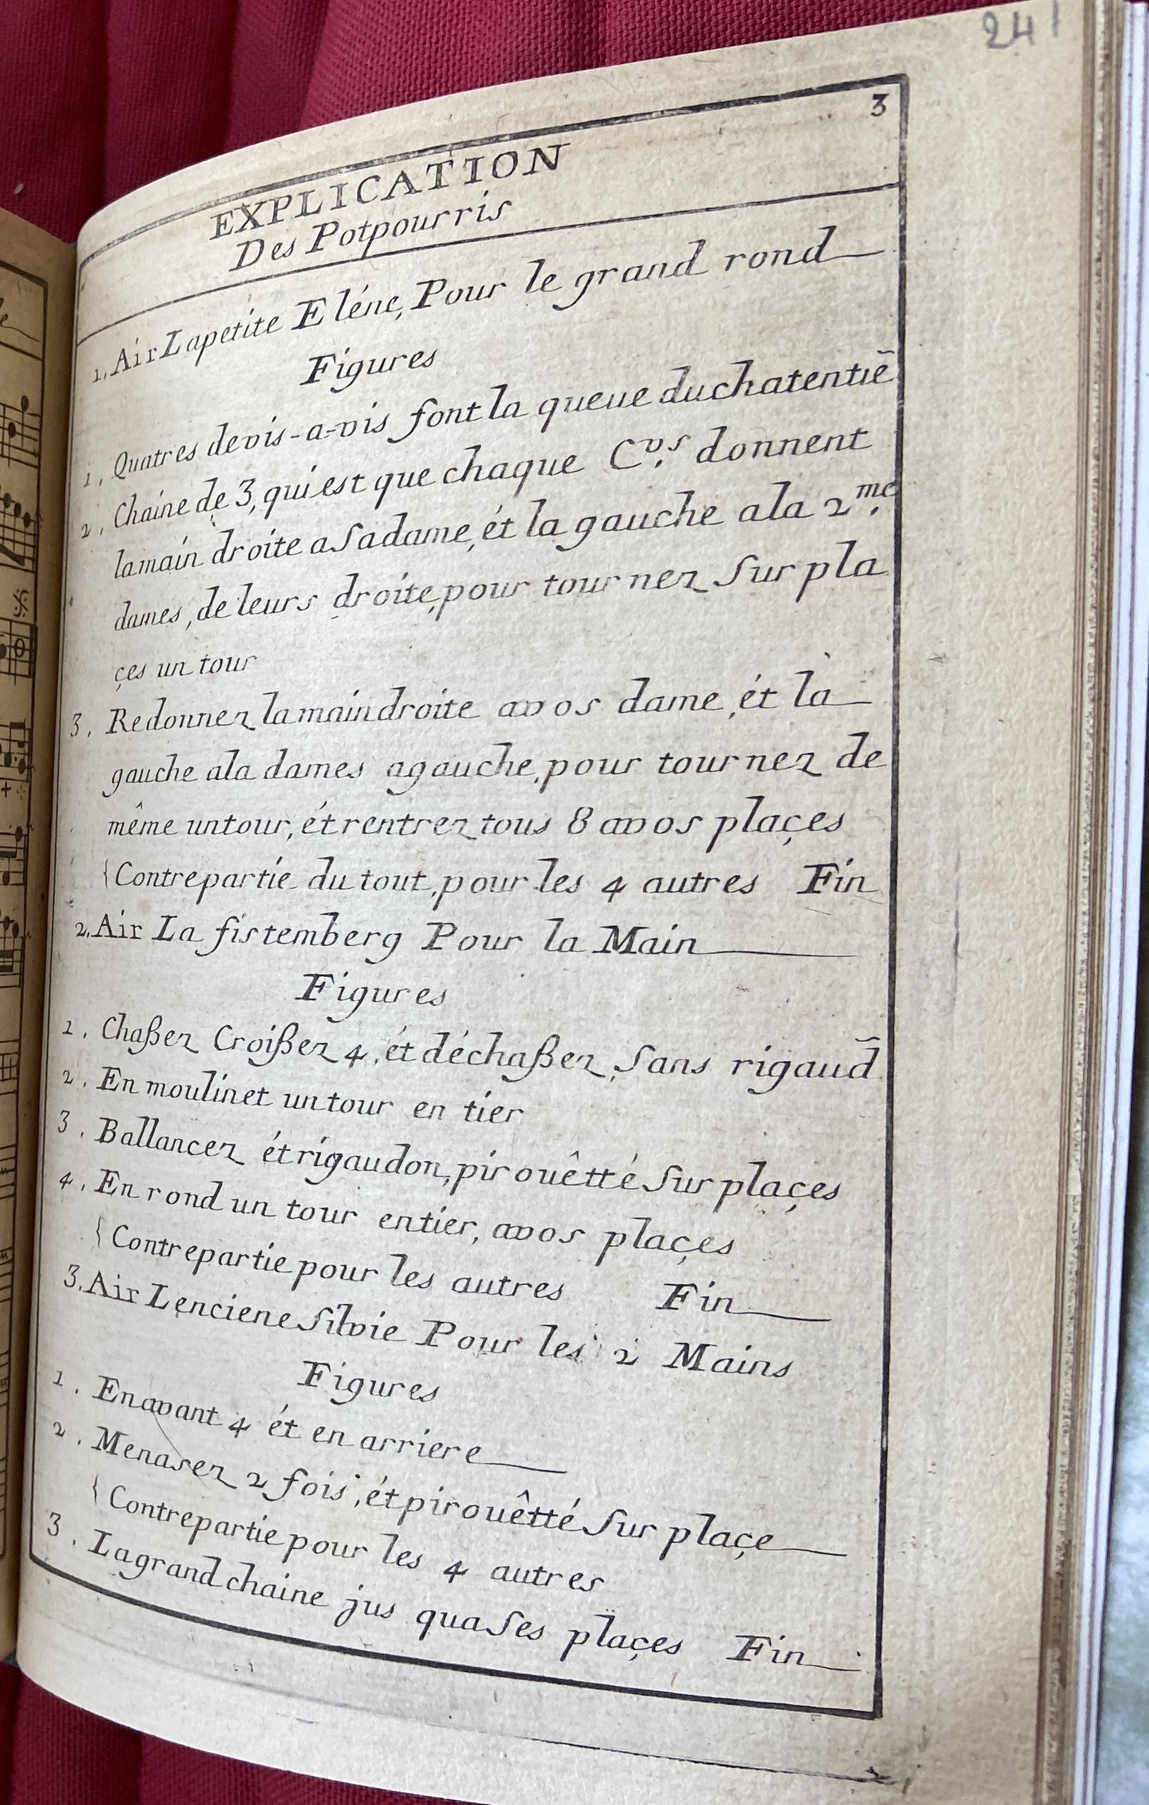 241
3
EXPLICATION
Des Potpourris
1. Air Lapetite Eléne, Pour le grand rond
Figures
1. Quatres devis-a-vis font la queue duchatentiē
2. Chaine de 3, qui est que chaque C.vs donnent
lamain droite a Sadame, ét la gauche ala 2.me
dames, de leurs droite, pour tournez Sur pla
çes un tour
3. Redonnez lamaindroite avos dame, ét la
gauche ala dames agauche, pour tournez de
même untour, ét rentrez tous 8 avos plaçes
{Contrepartie du tout, pour les 4 autres Fin
2. Air La fistemberg Pour la Main
Figures
1. Chaßez Croißez 4, ét déchaßez, Sans rigaud̃
2. En moulinet untour en tier
3. Ballancez ét rigaudon, pirouêtté Sur plaçes
4. En rond un tour entier, avos plaçes
{Contrepartie pour les autres Fin
3. Air Lenciene Silvie Pour les 2 Mains
Figures
1. Enavant 4 ét en arriere
2. Menasez 2 fois, ét pirouêtté Sur plaçe
{Contrepartie pour les 4 autres
3. Lagrand chaine jus qua Ses plaçes Fin